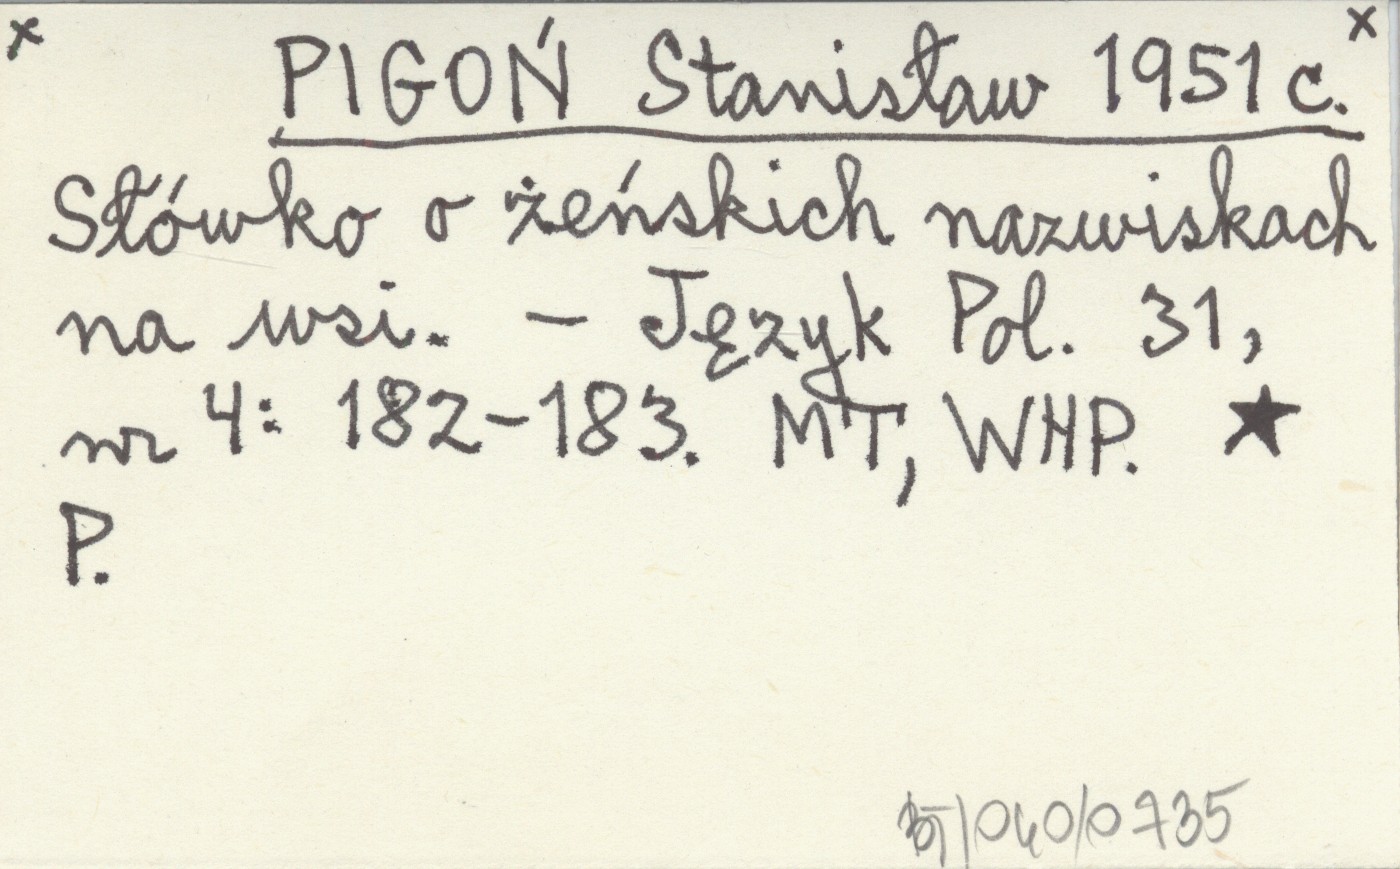 x x
PIGOŃ Stanisław 1951 c.
Słówko o żeńskich nazwiskach
na wsi. – Język Pol. 31,
nr 4: 182-183. MT, WHP. ★
P.
/040/0735